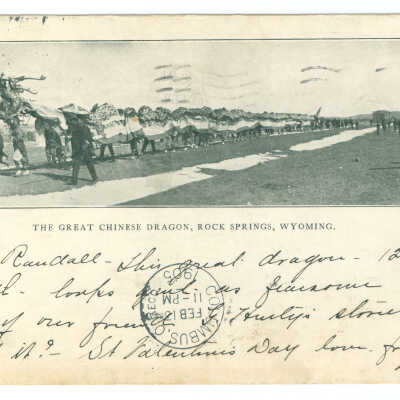 THE GREAT CHINESE DRAGON, ROCK SPRINGS, WYOMING.
Randall - This great dragon - 12
- looks as fearsome
of our friend Huty's stories
it? - St Valentine's Day love. fr
COLUMBUS, O.
REC'D
FEB 12
11-PM
1905